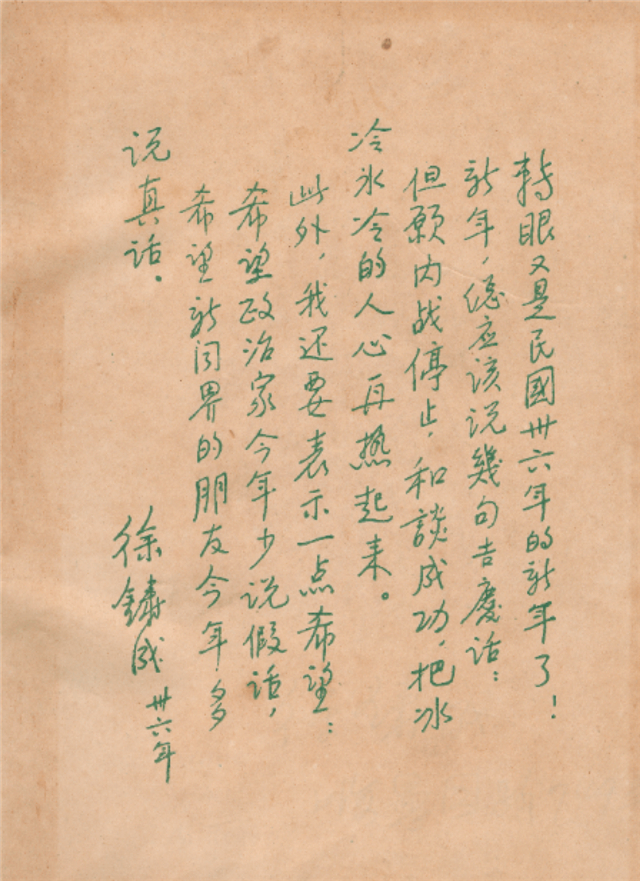 轉眼又是民國卅六年的新年了!
新年,總应该说幾句吉慶话:
但願内战停止,和談成功,把冰
冷氷冷的人心再热起来。
此外,我还要表示一点希望:
希望政治家今年少说假话,
希望新闻界的朋友今年多
说真话。
徐鑄成 卅六年